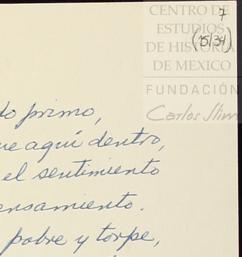 CENTRO DE
7
ESTUDIOS
(15/34)
DE HISTORIA
DE MEXICO
FUNDACIÓN
Carlos Slim
do primo,
ue aquí dentro,
el sentimiento
ensamiento.
pobre y torpe,